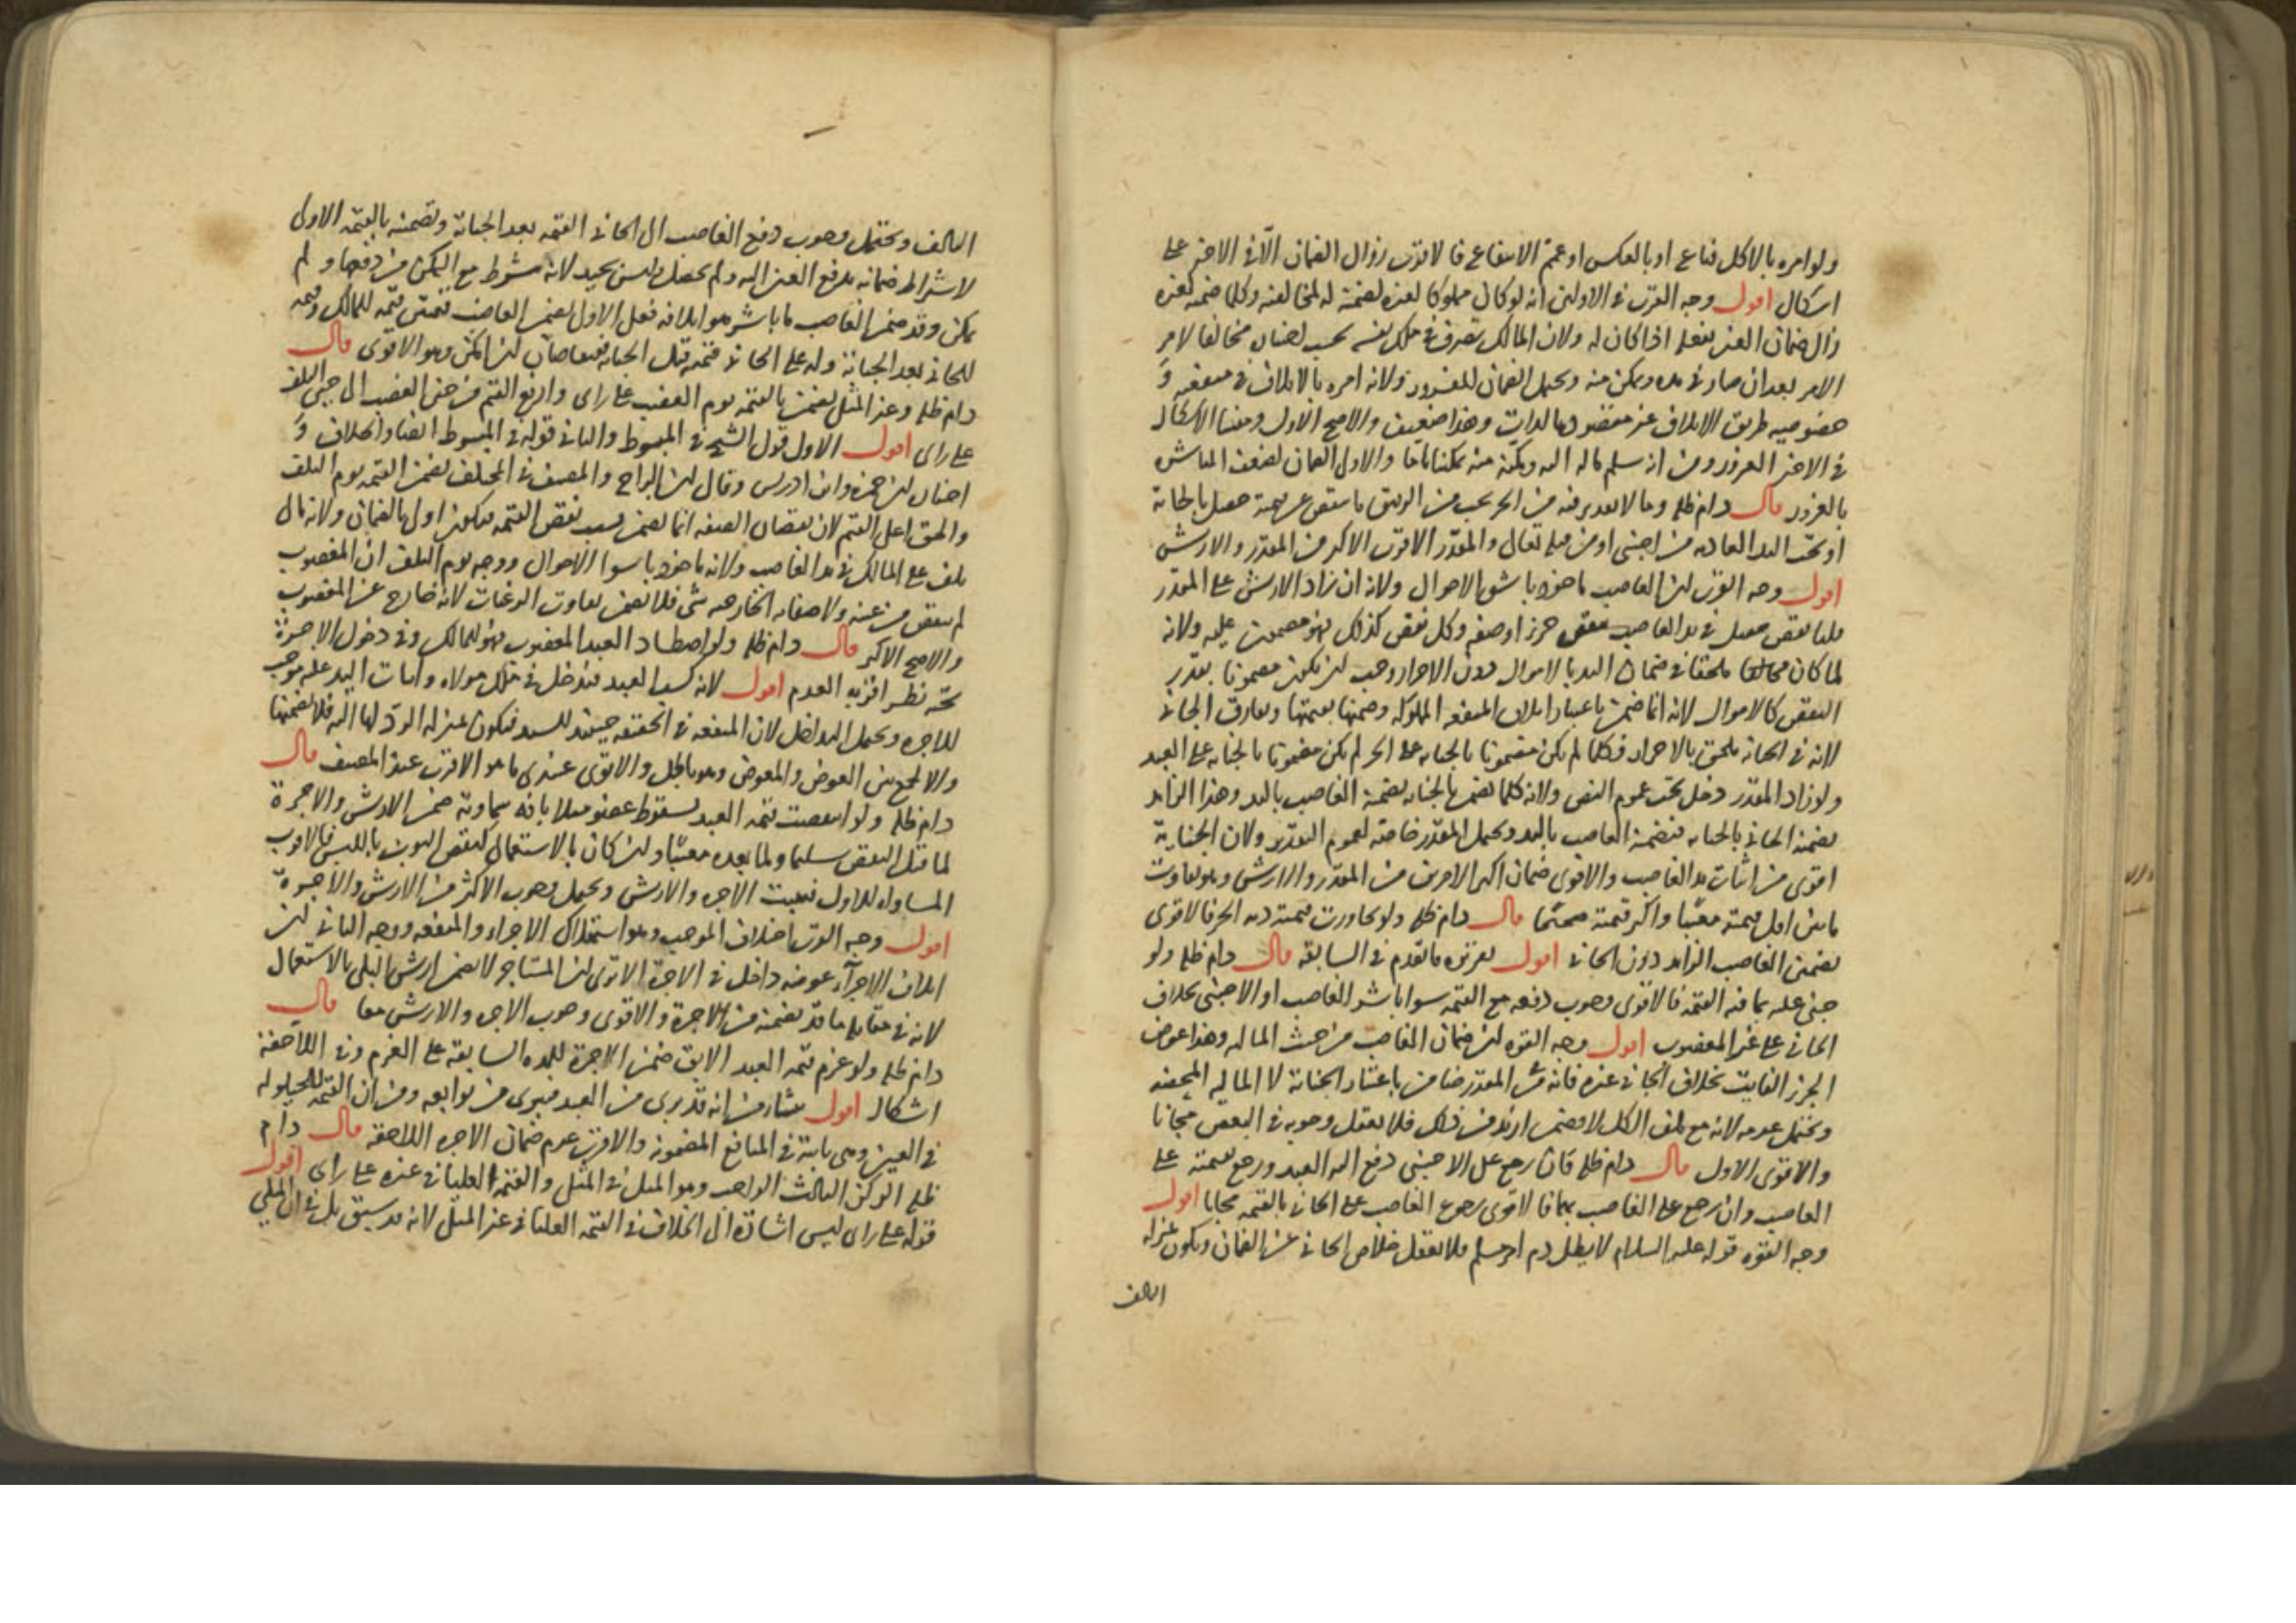 ولو امره بالاكل فباع او بالعكس او عمم الانتفاع فالاقرب زوال الضمان الا في الاخير على
اشكال اقول وجه القرب في الاولين انه لو كان مملوكا لغيره لضمنه له لمخالفته وكلما ضمنه لغيره
زال ضمان الغير بفعله اذا كان له ولان المالك تصرف في ملك نفسه مخالفا لامر
الامر بعد ان صار في يده وتمكن منه ويحتمل الضمان للغرور ولانه امره بالاتلاف في منفعه و
خصوصيه طريق الاتلاف غير مقصود بالذات وهذا ضعيف والاصح الاول ومنشا الاشكال
في الاخير الغرور ومن انه سلم ماله اليه ومكنه منه تمكينا تاما والاولى الضمان لضعف المباشره
بالغرور قال دام ظله وما لا تقدير فيه من الحر يجب من الرقيق ما ينقص من قيمته حصل بالجنايه
او تحت اليد العاديه من اجنبي او من قبله تعالى والمقدر الاقرب الاكثر من المقدر والارش
اقول وجه القرب ان الغاصب ماخوذ باشق الاحوال ولانه ان زاد الارش على المقدر
فلنا نقص حصل في يد الغاصب نقص جزء او صفه وكل نقص كذلك فهو مضمون عليه ولانه
لما كان ملحقا في ضمان اليد بالاموال دون الاحرار وجب ان يكون مضمونا بقدر
النقص كالاموال لانه انما ضمن باعتبار اتلاف المنفعه المملوكه وضمنها بقيمتها ويفارق الجاني
لانه في الجنايه ملحق بالاحرار فكلما لم يكن مضمونا بالجنايه على الحر لم يكن مضمونا بالجنايه على العبد
ولو زاد المقدر دخل تحت عموم النص ولانه كلما يضمن بالجنايه يضمنه الغاصب باليد وهذا الزايد
يضمنه الجاني بالجنايه فيضمنه الغاصب باليد ويحتمل المقدر خاصه لعموم التقدير ولان الجناية
اقوى من اثبات يد الغاصب والاقوى ضمان اكثر الامرين من المقدر والارش وهو تفاوت
ما بين اقل قيمته معيبا واكثر قيمته صحيحا قال دام ظله ولو تجاوزت قيمته ديه الحر فالاقوى
تضمين الغاصب الزايد دون الجاني اقول تقريره ما تقدم في السابقه قال دام ظله ولو
جنى عليه بما فيه القيمه فالاقوى وجوب دفعه مع القيمه سواء باشر الغاصب او الاجنبي بخلاف
الجاني على غير المغصوب اقول وجه القوه ان ضمان الغاصب من حيث الماليه وهذا عوض
الجزء الفايت بخلاف الجاني غيره فانه في المقدر ضامن باعتبار الجناية لا الماليه المحضه
ويحتمل عدمه لانه مع تلف الكل لا يضمن ازيد من ذلك فلا يعقل وجوبه في البعض مجانا
والاقوى الاول قال دام ظله فان رجع على الاجنبي دفع اليه العبد ورجع بقيمته على
الغاصب وان رجع على الغاصب بهما فالاقوى رجوع الغاصب على الجاني بالقيمه مجانا اقول
وجه القوه قوله عليه السلام لا يطل دم امرء مسلم فلا يعقل خلاص الجاني عن الضمان ويكون بمنزله
التالف
التالف ويحتمل وجوب دفع الغاصب الى الجاني القيمه بعد الجناية وتضمينه بالقيمه الاولى
لاشتراط ضمانه بدفع العين اليه ولم يحصل وليس بجيد لانه مشروط مع التمكن من دفعها و لم
يمكن وقد ضمن الغاصب ما باشر هو اتلافه فعلى الاول يضمن الغاصب قيمتين قيمه للمالك وقيمه
للجاني بعد الجناية وله على الجاني قيمته قبل الجنايه فيتقاصان ان امكن وهو الاقوى قال
دام ظله وغير المثلي يضمن بالقيمه يوم الغصب على راى وارفع القيم من حين الغصب الى حين التلف
على راى اقول الاول قول الشيخ في المبسوط والثاني قوله في المبسوط ايضا والخلاف و
اختيار ابن حمزه وابن ادريس وقال ابن البراج والمصنف في المختلف يضمن القيمه يوم التلف
والحق اعلى القيم لان نقصان الصفه انما يضمن بسبب نقص القيمه فيكون اولى بالضمان ولانه مال
تلف على المالك في يد الغاصب ولانه ماخوذ باسوا الاحوال ووجه يوم التلف ان المغصوب
لم ينقص من عينه ولا صفاته الخارجيه شي فلا يضمن تفاوت الرغبات لانه خارج عن المغصوب
والاصح الاكثر قال دام ظله ولو اصطاد العبد المغصوب فهو للمالك وفي دخول الاجرة
تحته نظر اقربه العدم اقول لانه كسب العبد فيدخل في ملك مولاه واثبات اليد عليه موجب
للاجره ويحتمل التداخل لان المنفعه في الحقيقه حينئذ للسيد فيكون بمنزله الرد لها اليه فلا يضمنها
والا لجمع بين العوض والمعوض وهو باطل والاقوى عندى ما هو الاقرب عند المصنف قال
دام ظله ولو انقصت قيمه العبد بسقوط عضو مثلا بافه سماوية ضمن الارش والاجرة
لما قبل النقص سليما ولما بعده معيبا وان كان بالاستعمال كنقص الثوب باللبس فالاقرب
المساواه للاول فيثبت الاجره والارش ويحتمل وجوب الاكثر من الارش والاجرة
اقول وجه القرب اختلاف الموجب وهو استهلاك الاجزاء والمنفعه ووجه الثاني ان
اتلاف الاجزآء عوضه داخل في الاجرة الا ترى ان المستاجر لا يضمن ارش البلى بالاستعمال
لانه في مقابله ما قد يضمنه من الاجرة والاقوى وجوب الاجره والارش معا قال
دام ظله ولو غرم قيمه العبد الابق ضمن الاجرة للمده السابقه على الغرم وفي اللاحقه
اشكال اقول ينشا من انه قد برى من العبد فيبرى من توابعه ومن ان القيمه للحيلوله
في العين وهي ثابتة في المنافع المضمونه والاقرب عدم ضمان الاجره اللاحقه قال دام
ظله الركن الثالث الواجب وهو المثل في المثلى والقيمه العليا في غيره على راى اقول
قوله على راى ليس اشاره الى الخلاف في القيمه العليا في غير المثلى لانه قد سبق بل في ان المثلى